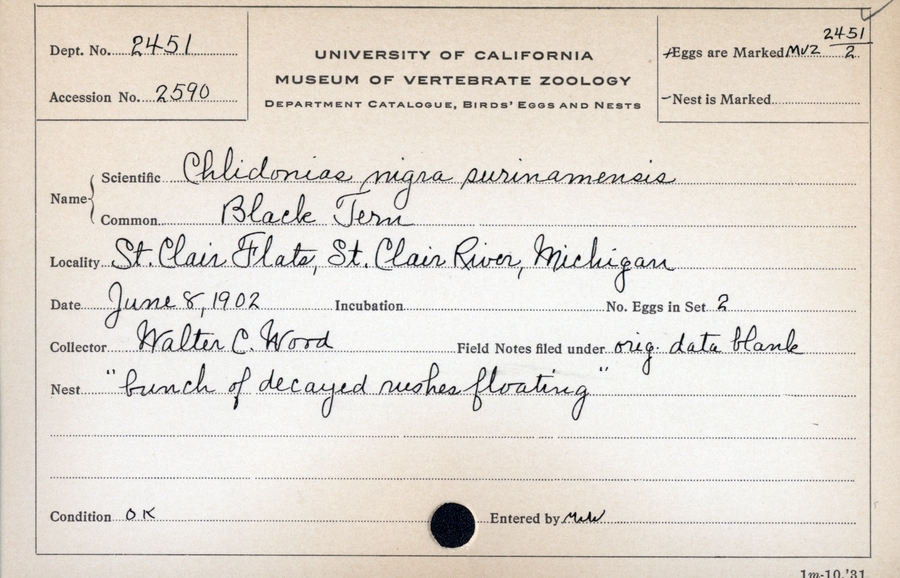 Dept. No. 2451
Accession No. 2590
UNIVERSITY OF CALIFORNIA
MUSEUM OF VERTEBRATE ZOOLOGY
DEPARTMENT CATALOGUE, BIRDS' EGGS AND NESTS
Eggs are Marked MVZ 2451/2
Nest is Marked
Name
Scientific Chlidonias nigra surinamensis
Common Black Tern
Locality St. Clair Flats, St. Clair River, Michigan
Date June 8, 1902 Incubation No. Eggs in Set 2
Collector Walter C. Wood Field Notes filed under orig. data blank
Nest "bunch of decayed rushes floating"
Condition OK Entered by
1m-10,'31